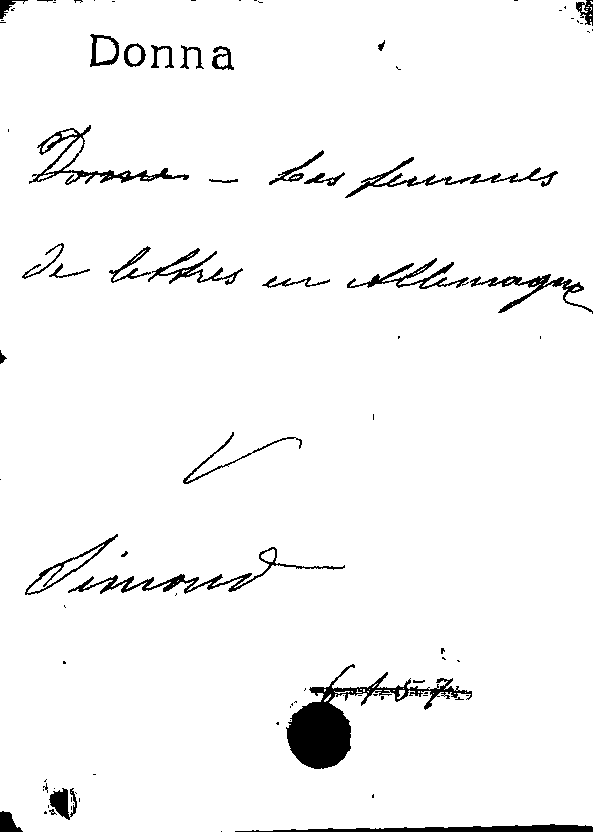 Donna
Donna - Les femmes
de lettres en Allemagne
Simond
6.1.57